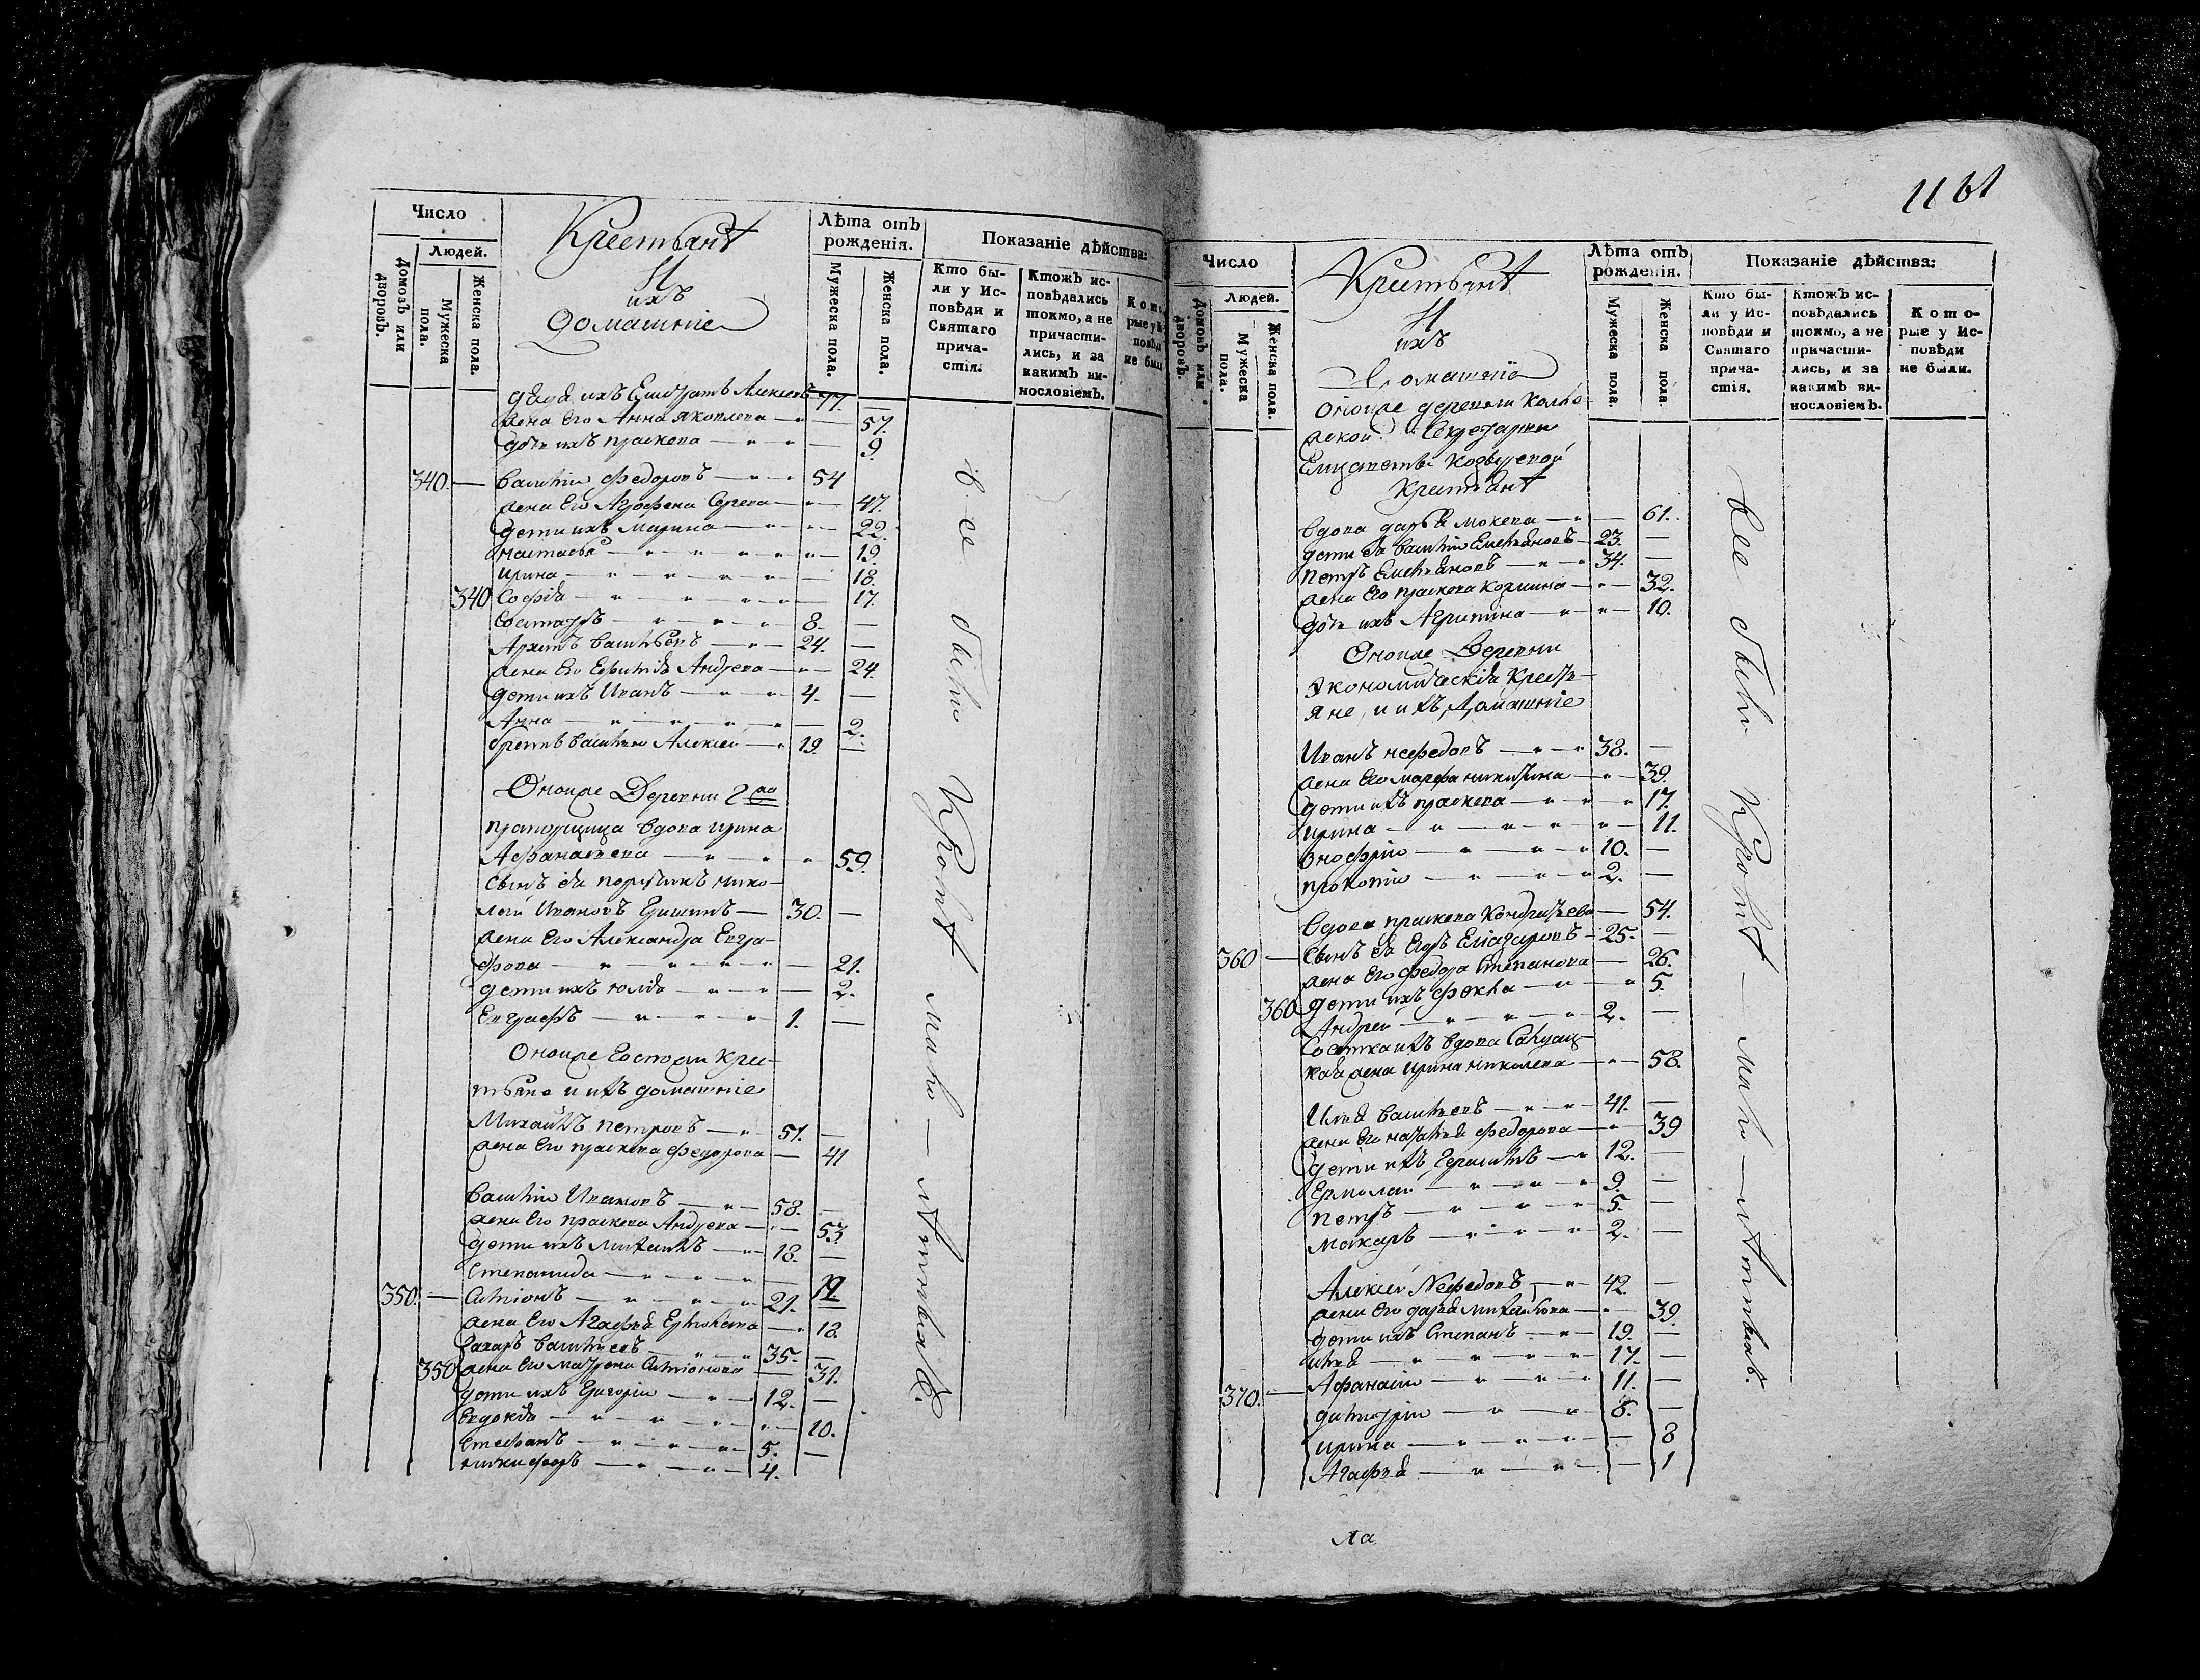 Число
Людей.
Домовъ или дворовъ.
Мужеска пола.
Женска пола.
Крестьянѣ
И
ихъ
Домашніе
Лѣта отъ рожденія.
Мужеска пола.
Женска пола.
Показаніе дѣйства:
Кто бы-
ли у Ис-
повѣди и
Святаго
прича-
стія.
Ктожъ ис-
повѣдались
токмо, а не
причасти-
лись, и за
какимъ ви-
нословіемъ.
дядя ихъ Алексѣевъ 77.
жена его Анна Яковлева — 57.
дочь ихъ праскева — 9.
340. — Василіи Федоровъ — 54
жена его Агрофена Сергева — 47.
дети ихъ Марина — 22.
настасья — 19.
ирина — 18.
340 Софія — 17.
8. —
Архипъ Васильевъ — 24. —
жена его Андрева — 24.
дети ихъ Иванъ — 4. —
Анна — 2.
братъ василью Алексеи — 19 —
Оноиже Деревни Г жа
прапорщица вдова ирина
Афанасьева — 59.
сынъ ея порутчикъ нико-
лаи Ивановъ Гришинъ — 30. —
жена его Александра Евгра-
фова — 21.
дети ихъ юлія — 2.
Евграфъ — 1. —
Оноиже Госпожи Кре-
стьяне и ихъ домашніе
Михаилъ петровъ — 51. —
жена его праскева Федорова — 41
Василіи Ивановъ — 58. —
жена его праскева Андрева — 53
дети ихъ михаилъ — 18. —
Степанида —
350. — Симіонъ — 21. —
жена его Агафья — 18.
Захаръ Васильевъ — 35. —
350 жена его матрена Симіонова — 31.
дети ихъ Григоріи — 12. —
Евдокія — 10.
Стефанъ — 5. —
никифоръ — 4.
все были кромѣ мало — лѣтнихъ
1161
Число
Людей.
Домовъ или дворовъ.
Мужеска пола.
Женска пола.
Крестьянѣ
И
ихъ
Домашніе
Лѣта отъ рожденія.
Мужеска пола.
Женска пола.
Показаніе дѣйства:
Кто бы-
ли у Ис-
повѣди и
Святаго
прича-
стія.
Ктожъ ис-
повѣдались
токмо, а не
причасти-
лись, и за
какимъ ви-
нословіемъ.
Кото-
рые у Ис-
повѣди
не были.
оноиже деревни
Секретарши
Крестьянѣ
вдова дарья мокева — 61.
дети ея василіи Емельяновъ — 23. —
петръ Емельяновъ — 34. —
жена его праскева Козмина — 32.
дочь ихъ Агрипина — 10.
Оноиже Деревни
Экономическія Кресть-
яне, и ихъ Домашніе
Иванъ нефедовъ — 38. —
жена его марфа никитина — 39.
дети ихъ праскева — 17.
ирина — 11.
Онофріи — 10. —
прокопіи — 2. —
вдова праскева Кондратьева — 54.
360 — сынъ ея Егоръ Елиазаровъ — 25. —
жена его Федора Степанова — 26.
360 дети ихъ Фекла — 5.
Андреи — 2. —
ихъ вдова Салдац-
кая жена ирина николаева — 58.
Илья Васильевъ — 41. —
жена его наталья Федорова — 39
дети ихъ Герасимъ — 12. —
Ермолаи — 9. —
петръ — 5. —
макаръ — 2. —
Алексіи Нефедовъ — 42. —
жена его дарья михаилова — 39.
дети ихъ Степанъ — 19. —
илья — 17. —
370. — Афанасіи — 11. —
димитріи — —
ирина — 8
Агафья — 1
все были кромѣ — мало — лѣтнихъ.